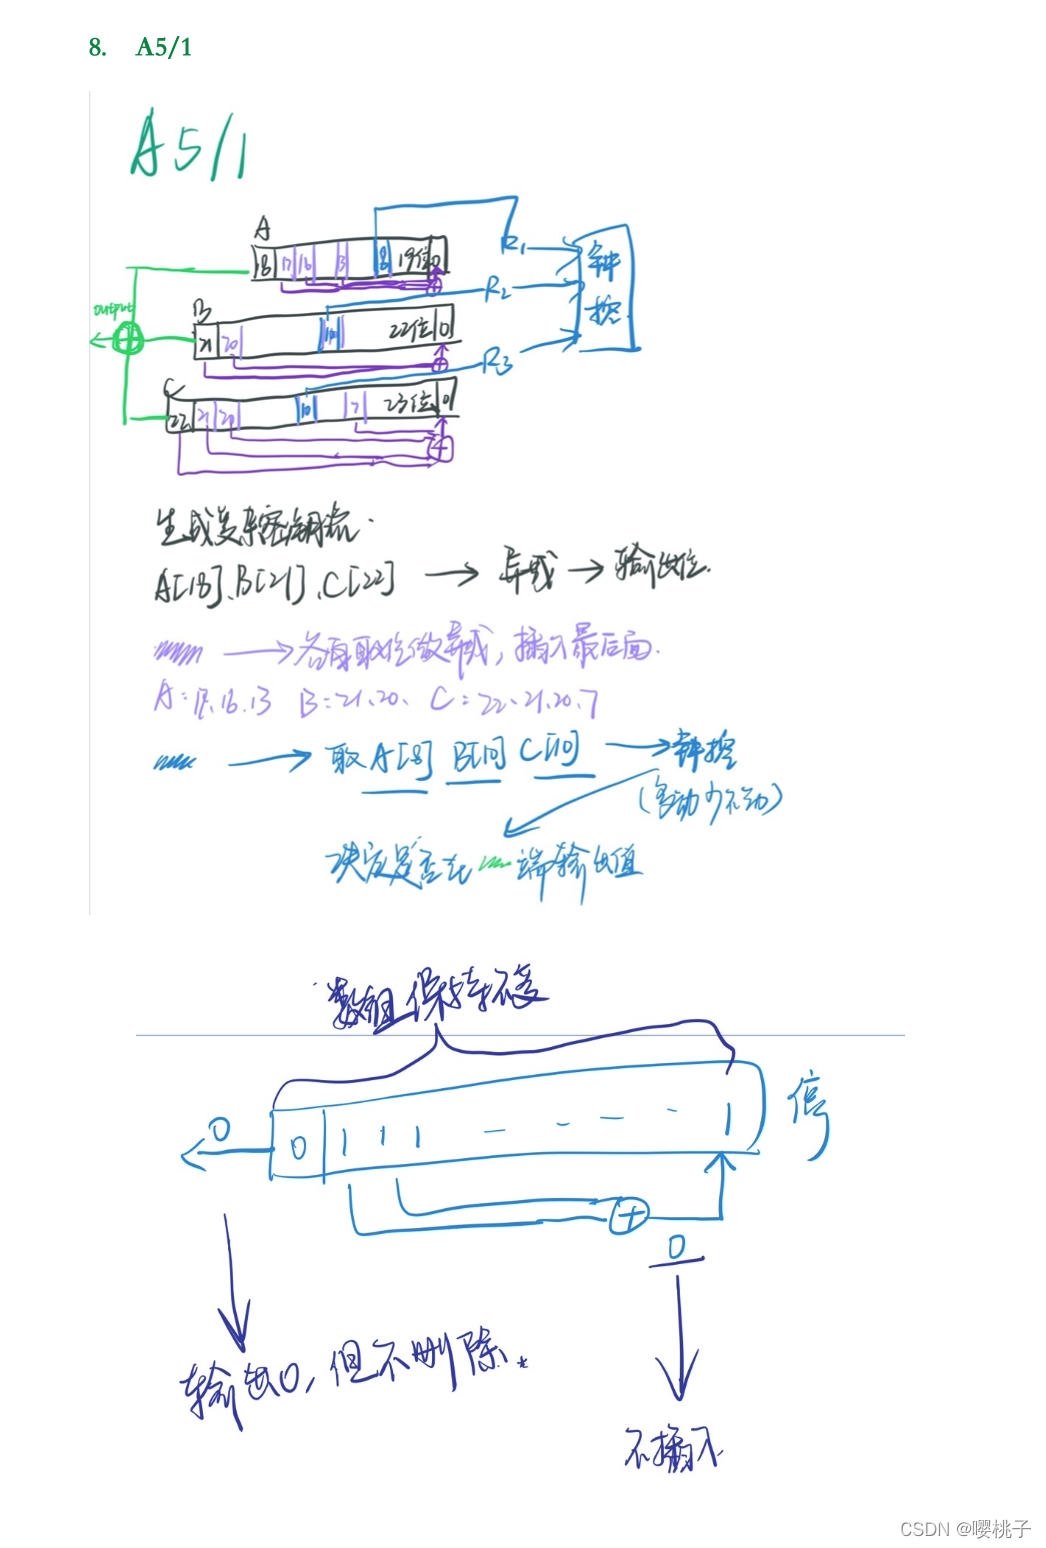 8. A5/1
A5/1
A
18 17 16 13 8 19位 0
R1
钟控
output
B
21 20 10 22位 0
R2
C
22 21 20 10 7 23位 0
R3
生成复杂密钥流.
A[18]、B[21]、C[22] → 异或 → 输出位.
→ 各自取位做异或,插入最后面.
A: 18.16.13 B: 21、20、 C: 22、21、20、7
→ 取A[8] B[10] C[10] → 钟控
(多动少不动)
决定是否在 端输出值
数组保持不变
0 0 1 1 1 1 停
0
输出0,但不删除.
不插入
CSDN @嘤桃子